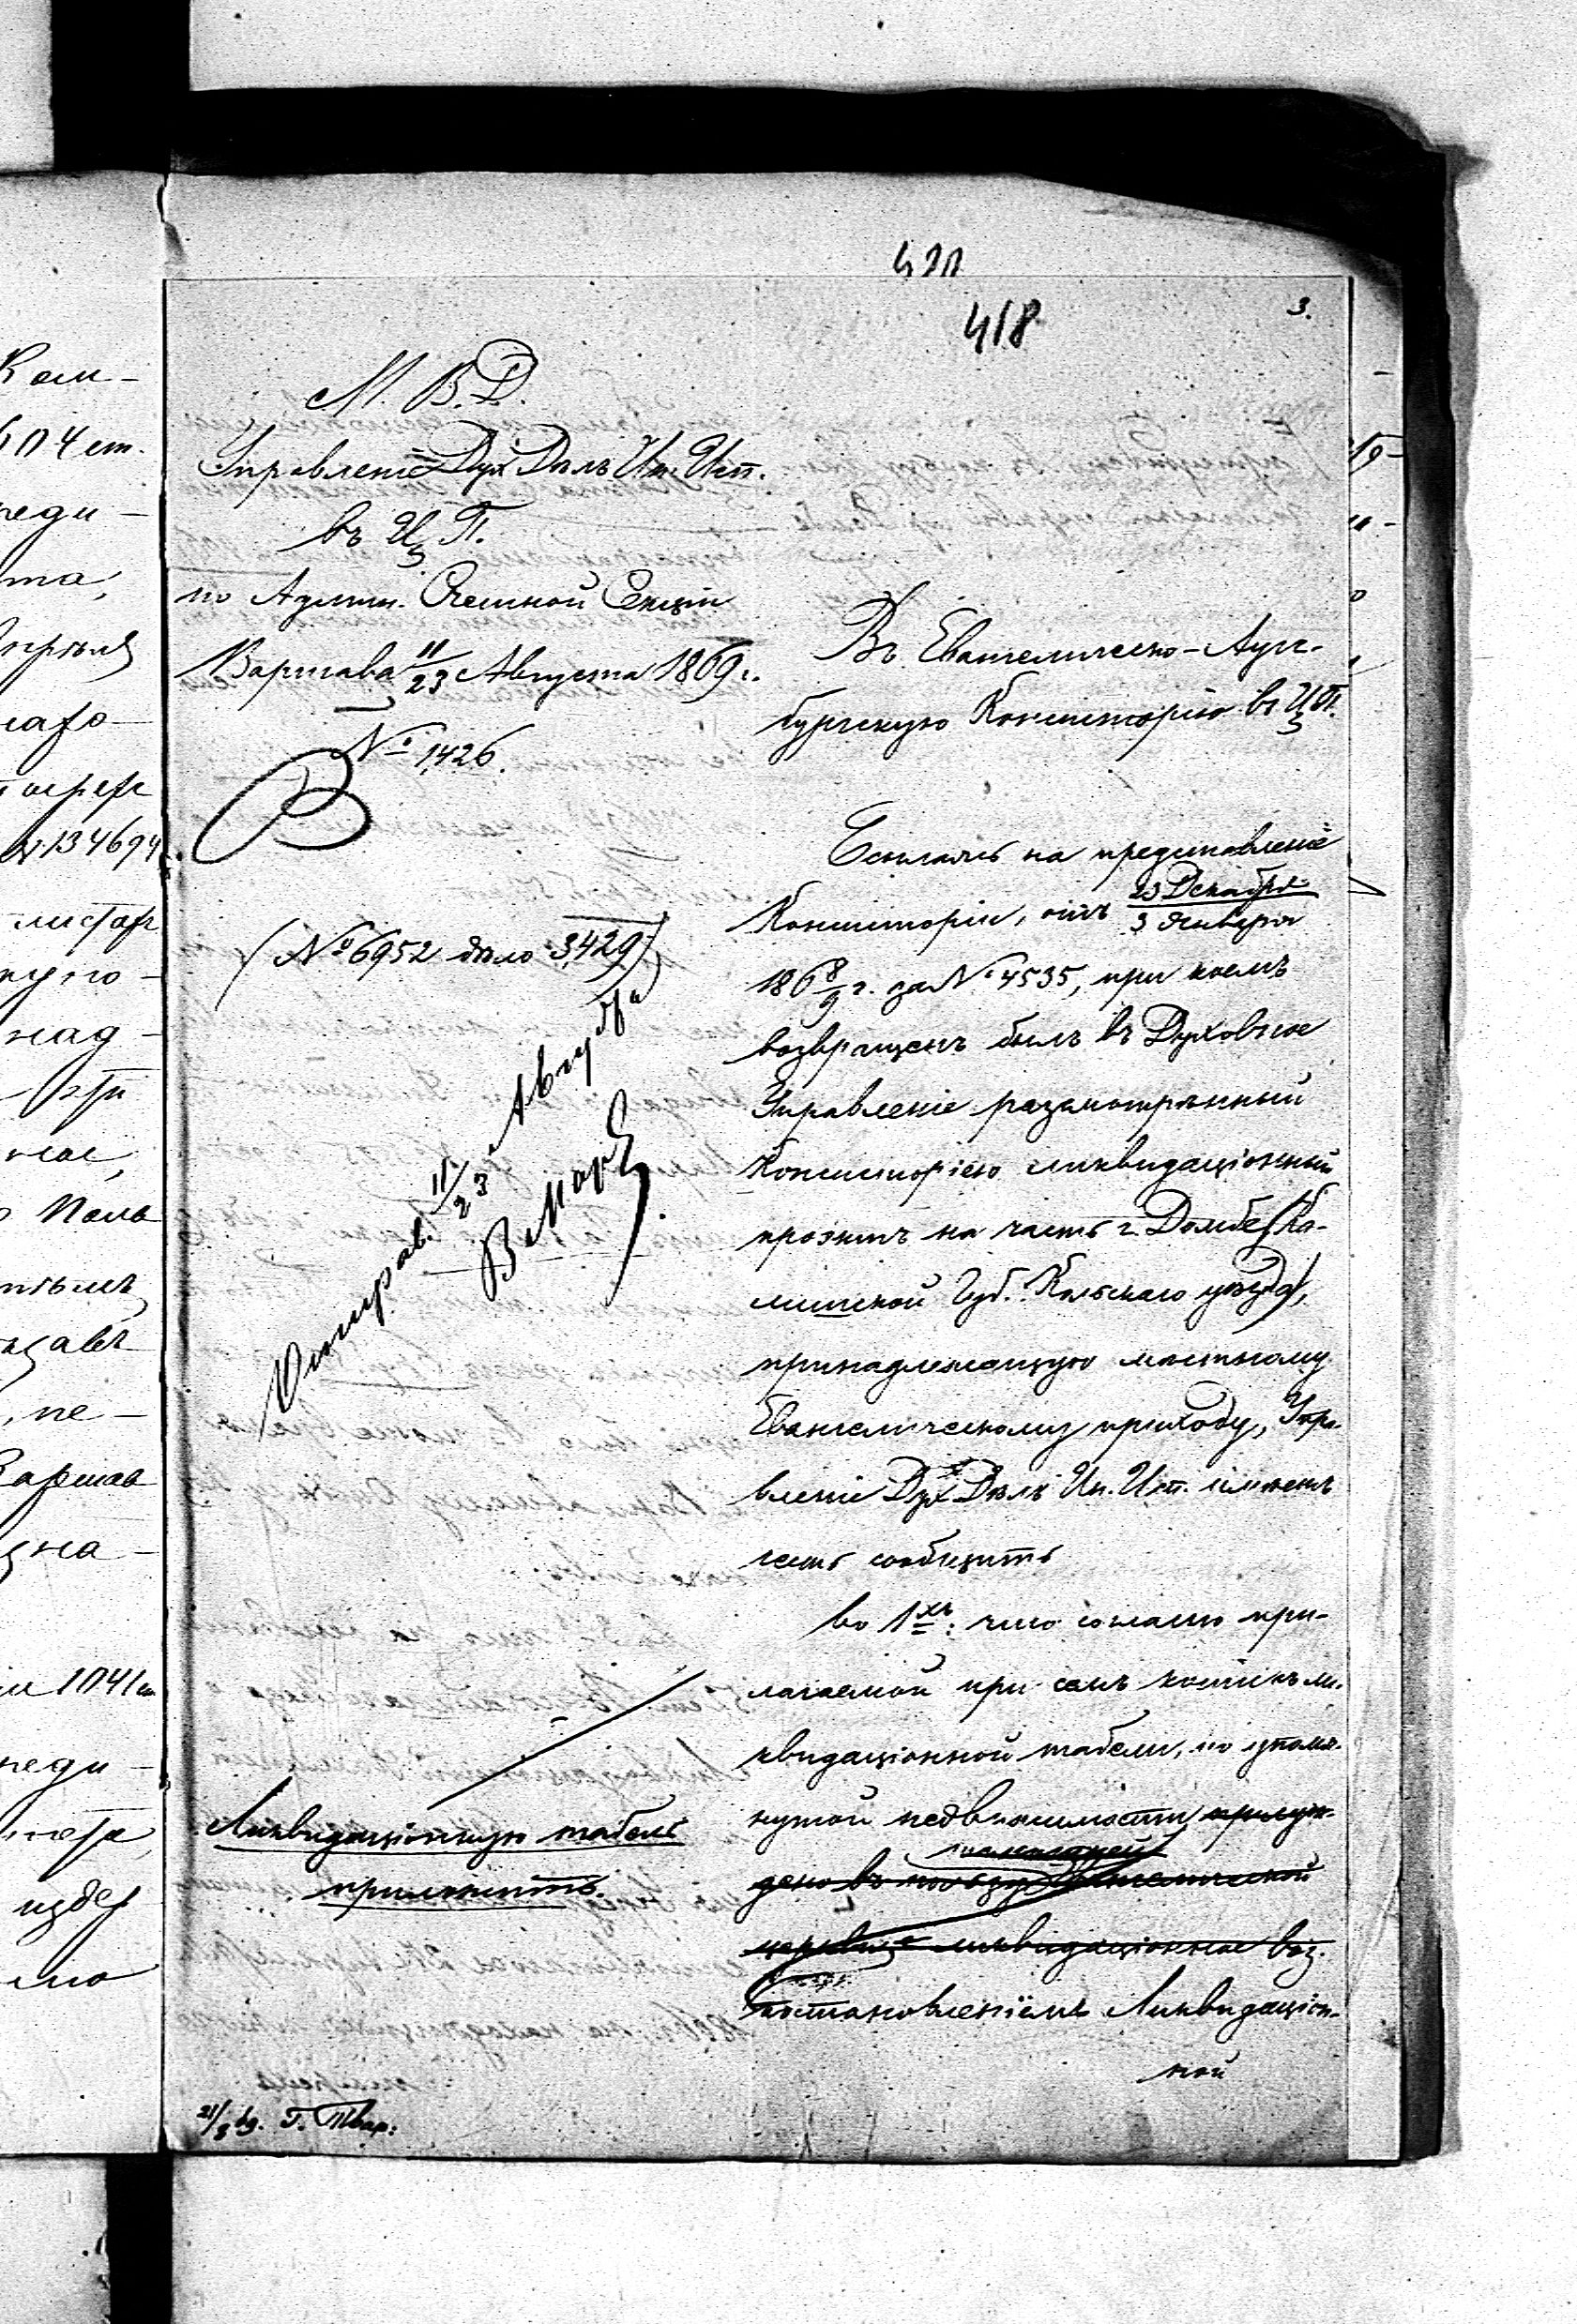 420
418
3.
М. В. Д.
Управленіе Дух Дѣлъ Ин. Исп.
въ Ц. П.
по Админ. Счетной Секціи
Варшава 11/23 Августа 1869 г.
№ 1426.
(№ 6952 дѣло 3429)
Отправ. 11/23 Августа
Ликвидаціонную табель
приложить.
21/8 69. Г. Твар:
Въ Евангелическо-Аугс-
бургскую Консисторію въ Ц. П.
Ссылаясь на представленіе
Консисторіи, отъ 23 Декабря / 3 Января
186 8/9 г. за № 4535, при коемъ
возвращенъ былъ въ Духовное
Управленіе разсмотрѣнный
Консисторіею ликвидаціонный
проэктъ на часть г. Домбе (Ка-
лишской Губ. Кольскаго уѣзда),
принадлежащую мѣстному
Евангелическому приходу, Упра-
вленіе Дух Дѣлъ Ин. Исп. имѣетъ
честь сообщить
во 1хъ: что согласно при-
лагаемой при семъ копіи ли-
квидаціонной табели, по упомя-
нутой недвижимости присуж-
дено въ пользу Евангелической
церкви ликвидаціонное воз.
постановленіемъ Ликвидаціон-
ной
Ком-
604 ст.
реди-
та,
134694
над-
эти
Поль
, не-
Варшав
зна-
1041 ст.
реди-